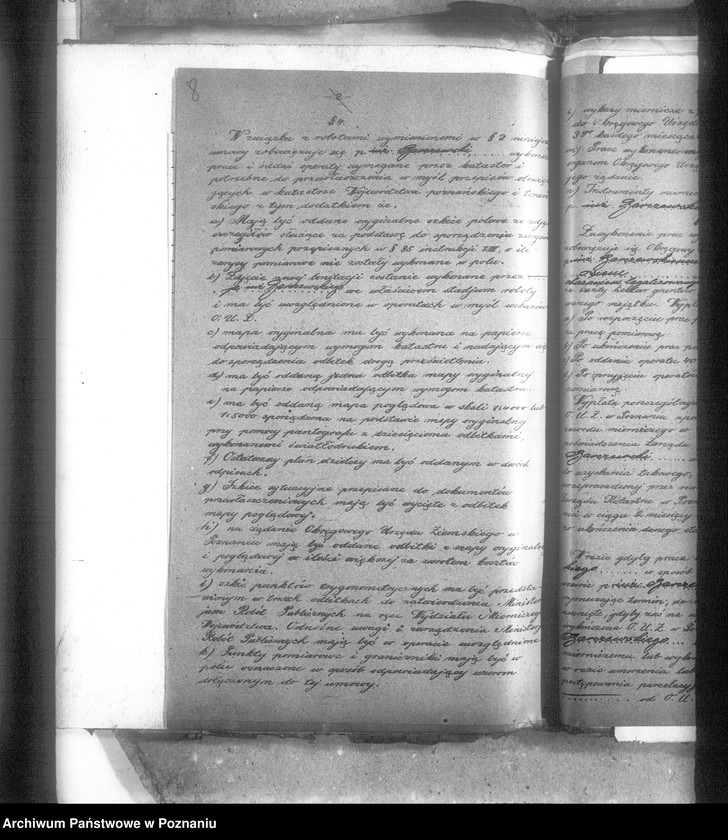 8
2
§ 4.
W związku z robotami wymienionemi w § 2 niniejs
umowy zobowiązuje się p. inż. Garczewski, wykonać
prace i oddać operaty wymagane przez kataster i
potrzebne do przewłaszczenia w myśl przepisów obowią
jących w katastrze Województwa poznańskiego i
skiego z tym dodatkiem że:
a) Mają być oddane oryginalne szkice polowe ze zdję
szczegółów służące za podstawę do sporządzenia
pomiarowych przepisanych w § 85 instrukcji VIII, o ile
zarysy pomiarowe nie zostały wykonane w polu.
b) Zdjęcie nowej bonitacji zostanie wykonane przez
we właściwem stadjum roboty
i ma być uwzględnione w operatach w myśl
O. U. Z.
c) mapa oryginalna ma być wykonana na papierze
odpowiadającym wymogom katastru i nadającym się
do sporządzenia odbitek drogą prześwietlenia.
d) ma być oddaną jedna odbitka mapy oryginalnej
na papierze odpowiadającym wymogom katastru.
e) ma być oddaną mapa poglądowa w skali 1:4000 lub
1:5000 sporządzona na podstawie mapy oryginalnej
przy pomocy pantografu z dziesięcioma odbitkami,
wykonanemi światłodrukiem.
f) Ostateczny plan dzielczy ma być oddanym w dwóch
odpisach.
g) Szkice sytuacyjne przepisane do dokumentów
przewłaszczeniowych mają być wycięte z odbitek
mapy poglądowej.
h) na żądanie Okręgowego Urzędu Ziemskiego w
Poznaniu mają być oddane odbitki z mapy oryginalnej
i poglądowej w ilości większej za zwrotem kosztów
wykonania.
i) szkic punktów trygonometrycznych ma być przedsta
wionym w trzech odbitkach do zatwierdzenia Minister
jum Robót Publicznych na ręce Wydziału Mierniczego
Województwa. Odnośne uwagi i zarządzenia Minister
Robót Publicznych mają być w operacie uwzględnione
k) Punkty pomiarowe i graniczniki mają być w
polu oznaczone w sposób odpowiadający wzorom
dołączonym do tej umowy.
l) wykazy miernicze z
do Okręgowego Urzęd
każdego miesiąca
m) Prace wykonane
organom Okręgowego Urzę
jego żądanie.
n) Instrumenty
p. inż. Garczewski
Za wykonanie prac
zobowiązuje się Okręgowy
inż. Garczewskiemu
za każdy hektar
wanego majątku. Wypła
a) Po rozpoczęciu prac
za prace pomiarowe
b) Po ukończeniu prac
c) Po oddaniu operatu
d) Po przyjęciu operatu
Wypłata poszczególnych
O. U. Z. w Poznaniu
zawodu mierniczego w
poświadczenia Zarządu
Garczewski
o uzyskaniu takowego,
Urzędu Katastru w Poz
nia w ciągu 2 miesięcy
po ukończeniu danego
W razie gdyby praca
kiego w sposób
Garcze
wykonane O. U. Z. w Po
Garczewskiego
mierniczemu lub
w razie umorzenia lub
postępowania parcelacyj
od O. U.
Archiwum Państwowe w Poznaniu